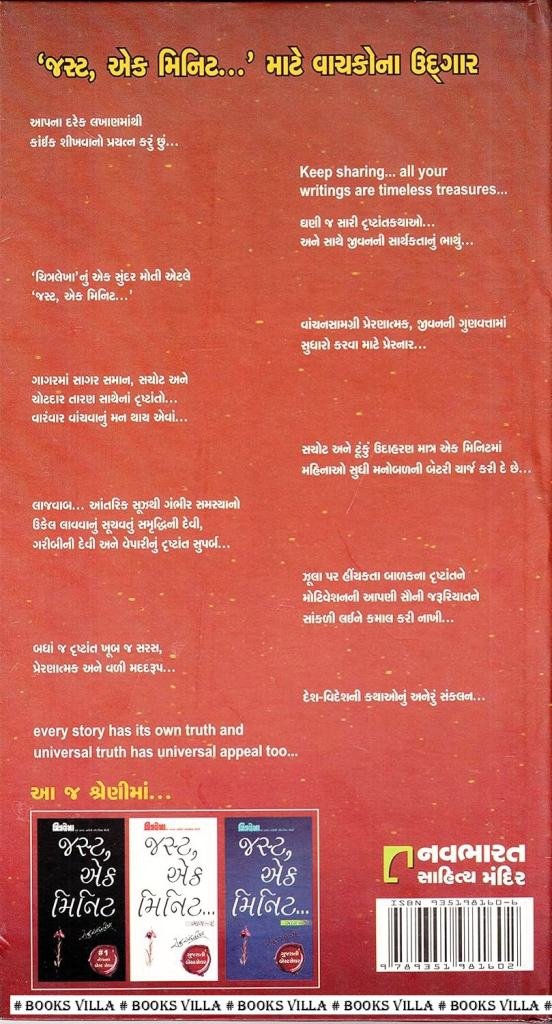 ‘જસ્ટ, એક મિનિટ...’ માટે વાચકોના ઉદ્‌ગાર
આપના દરેક લખાણમાંથી
કાંઈક શીખવાનો પ્રયત્ન કરું છું...
Keep sharing... all your
writings are timeless treasures...
ઘણી જ સારી દૃષ્ટાંતકથાઓ...
અને સાથે જીવનની સાર્થકતાનું ભાથું...
‘ચિત્રલેખા’નું એક સુંદર મોતી એટલે
‘જસ્ટ, એક મિનિટ...’
વાંચનસામગ્રી પ્રેરણાત્મક, જીવનની ગુણવત્તામાં
સુધારો કરવા માટે પ્રેરનાર...
ગાગરમાં સાગર સમાન, સચોટ અને
ચોટદાર તારણ સાથેનાં દૃષ્ટાંતો...
વારંવાર વાંચવાનું મન થાય એવાં...
સચોટ અને ટૂંકું ઉદાહરણ માત્ર એક મિનિટમાં
મહિનાઓ સુધી મનોબળની બેટરી ચાર્જ કરી દે છે...
લાજવાબ... આંતરિક સૂઝથી ગંભીર સમસ્યાનો
ઉકેલ લાવવાનું સૂચવતું સમૃદ્ધિની દેવી,
ગરીબીની દેવી અને વેપારીનું દૃષ્ટાંત સુપર્બ...
ઝૂલા પર હીંચકતા બાળકના દૃષ્ટાંતને
મોટિવેશનની આપણી સૌની જરૂરિયાતને
સાંકળી લઈને કમાલ કરી નાખી...
બધાં જ દૃષ્ટાંત ખૂબ જ સરસ,
પ્રેરણાત્મક અને વળી મદદરૂપ...
દેશ-વિદેશની કથાઓનું અનેરું સંકલન...
every story has its own truth and
universal truth has universal appeal too...
આ જ શ્રેણીમાં...
ચિત્રલેખા
જસ્ટ,
એક
મિનિટ
#1
ચિત્રલેખા
જસ્ટ,
એક
મિનિટ...
ભાગ-૨
ચિત્રલેખા
જસ્ટ,
એક
મિનિટ...
નવભારત
સાહિત્ય મંદિર
ISBN 935198160-6
9 789351 981602
# BOOKS VILLA # BOOKS VILLA # BOOKS VILLA # BOOKS VILLA # BOOKS VILLA #